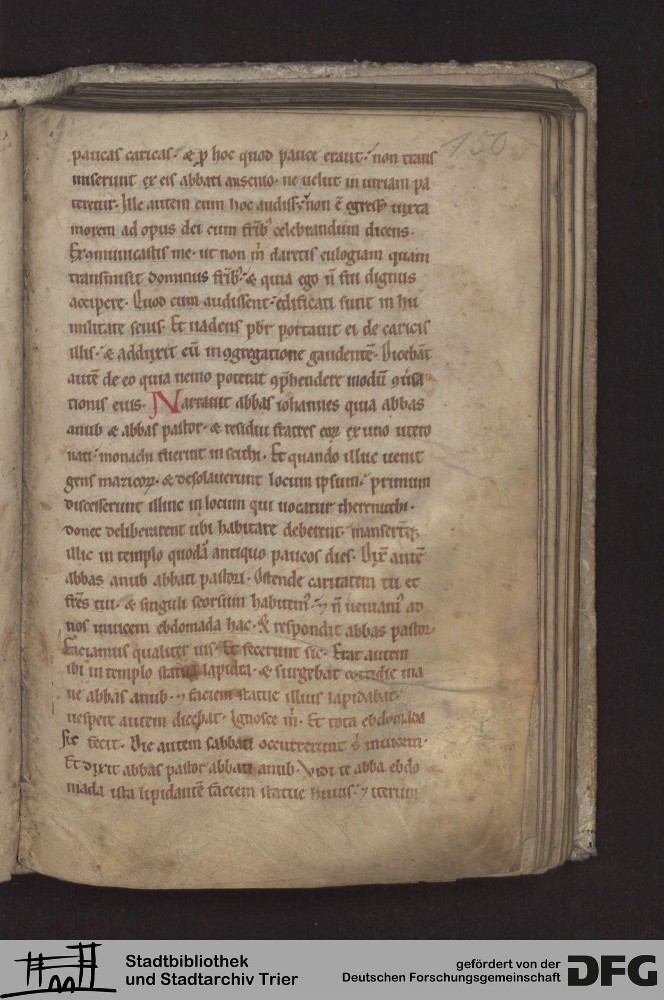 150
paucas caricas. & p hoc quod pauce erant. non trans
miserunt ex eis abbati arsenio. ne uelut in iniuriam pa
teretur. Ille autem cum hoc audiss&. non ē egressꝰ iuxta
morem ad opus dei cum fr̄ibꝰ celebrandum dicens.
Exꝯmunicastis me. ut non m̄ daretis eulogiam quam
transmisit dominus fr̄ibꝰ. & quia ego n̄ fui dignus
accipere. Quod cum audissent. edificati sunt in hu
militate senis. Et uadens pb̄r portauit ei de caricis
illis. & adduxit eū in ꝯgregatione gaudentē. Dicebāt
autē de eo quia nemo poterat ꝯp̄hendere modū ꝯūsa
tionis eius. Narrauit abbas iohannes quia abbas
anub & abbas pastor. & residui fratres eoꝝ ex uno utero
nati. monachi fuerint in scithi. Et quando illuc uenit
gens mazicoꝝ. & desolauerunt locum ipsum. primum
discesserunt illinc in locum qui uocatur therenuthi.
donec deliberarent ubi habitare deberent. mansert̄qꝫ
illic in templo quodā antiquo paucos dies. Dix̄ autē
abbas anub abbati pastori. Ostende caritatem tu et
fr̄es tui. & singuli seorsum habitemꝰ. ⁊ n̄ ueniamꝰ ad
nos inuicem ebdomada hac. & respondit abbas pastor.
Faciamus qualiter uis. Et fecerunt sic. Erat autem
ibi in templo statua lapidea. & surgebat cottidie ma
ne abbas anub. ⁊ faciem statue illius lapidabat.
uespere autem dicebat. Ignosce m̄. Et tota ebdomada
sic fecit. Die autem sabbati occurrerunt s̄ inuicem.
Et dixit abbas pastor abbati anub. Vidi te abba ebdo
mada ista lapidantē faciem statue huius. ⁊ iterum
Stadtbibliothek
und Stadtarchiv Trier
gefördert von der
Deutschen Forschungsgemeinschaft
DFG